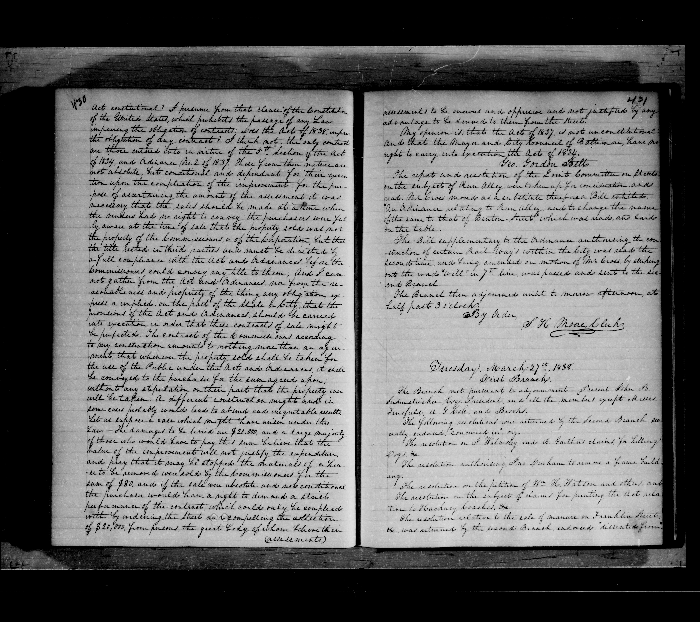 430
Act constitutional? I presume from that clause of the Constitution
of the United States, which prohibits the passage of any Law
impairing the obligation of contracts. Does the Act of 1838, impair
the obligation of any contract? I think not. The only contracts
are those entered into in virtue of the Section of the Act
of 1834, and Ordinance No. 2 of 1837. These I view then were
not absolute, but conditional and dependent for their execu
tion upon the completion of the improvement. For the pur
pose of ascertaining the amount of the assessment it was
necessary that the sales should be made at a time when
the owners had no right to convey. The purchasers were ful
ly aware at the time of sale that the property sold was not
the property of the Commissioners or of the Corporation, but that
the title rested in third parties and must be divested by
a full compliance with the Act and Ordinances before the
Commissioners could convey any title to them, And I can
not gather from the Act and Ordinances, nor from the re
asonableness and propriety of the thing any obligation ex
press or implied, on the part of the State or City, that the
provisions of the Act and Ordinances, should be carried
into execution in order that these contracts of sale might
be perfected. The contract of the Commissioners according
to my construction, amounts to nothing more than an agree
ment, that whenever the property sold shall be taken for
the use of the Public under the Act and Ordinances, it shall
be conveyed to the purchaser for the sum agreed upon
without any stipulation on their part that the property ever
will be taken. A different construction might and in
some cases probably would lead to absurd and inequitable results.
Let us suppose a case which might have arisen under this
Law. The damages to be levied are $20,000, and a large majority
of those who would have to pay this sum believe that the
value of the improvement will not justify the expenditure
and pray that it may be stopped. The materials of a house
to be removed were sold by the Commissioners for the
sum of $30, and if the sale was absolute and not conditional
the purchaser would have a right to demand a strict
performance of the contract which could only be complied
with by widening the Street and compelling the collection
of $20,000, from persons the great body of whom believe their
(assessments)
431
assessments to be onerous and oppressive and not justified by any
advantage to be derived to them from the Street.
My opinion is, that the Act of 1837, is not unconditional
and that the Mayor and City Council of Baltimore, have no
right to carry into execution the Acts of 1834.
Geo. Gordon Belt
The report and resolution of the Joint Committee on Streets
on the subject of Run Alley were taken up for consideration and
read. Mr moved as a substitute therefor a Bill entitled
"An Ordinance relating to Run Alley, and to change the name
of the same to that of Benton Street" which was read and laid
on the table.
The Bill supplementary to the Ordinance authorising the con
struction of certain Rail Ways within the City was read the
second time, and having amended on motion of Mr by striking
out the words "will" in 7th line was passed and sent to the sec
ond Branch.
The Branch then adjourned until to morrow afternoon, at
half past 3 o'clock.
By Order
A H Clerk
Tuesday, March 27th, 1838.
First Branch.
The Branch met pursuant to adjournment. Present John B.
Seidenstricker, Esqr. President, and all the members except Messrs
and Brooks.
The following resolutions were returned by the Second Branch seve
rally endorsed, "concurred in" viz:
The resolution on claims for killing
Dogs &c
The resolution authorising to remove a Frame Build
ing.
The resolution on the petition of Wm H. Watson and others, and
The resolution on the subject of for printing the Act rela
tion to
The resolution relative to the sale of manure on Franklin Street,
&c was returned by the second Branch endorsed "dissented from"